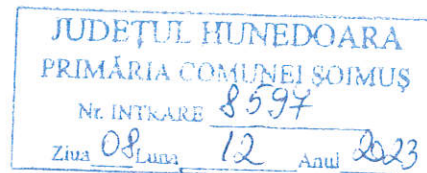 JUDEȚUL HUNEDOARA
PRIMĂRIA COMUNEI ȘOIMUȘ
Nr. INTRARE 8597
Ziua 08 Luna 12 Anul 2023